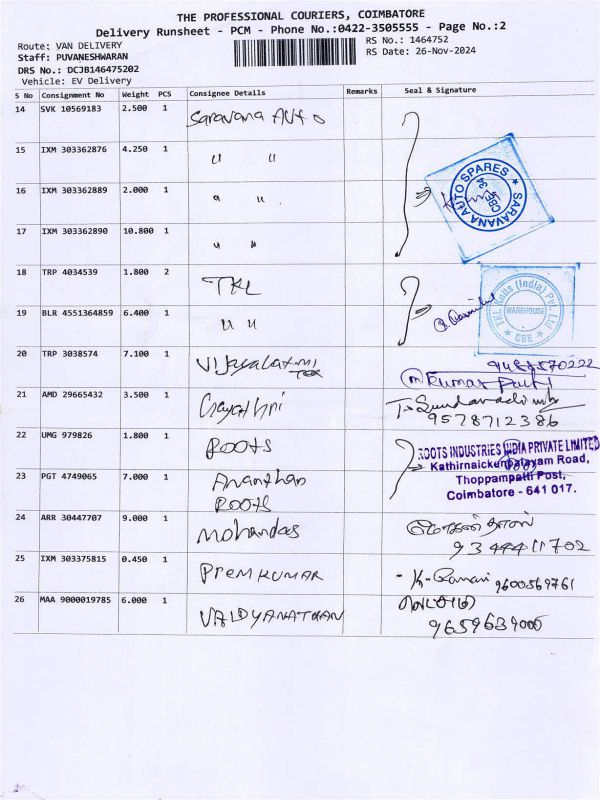 THE PROFESSIONAL COURIERS, COIMBATORE
Delivery Runsheet - PCM - Phone No.:0422-3505555 - Page No.:2
Route: VAN DELIVERY RS No.: 1464752
Staff: PUVANESHWARAN RS Date: 26-Nov-2024
DRS No.: DCJB146475202
Vehicle: EV Delivery
S No Consignment No Weight PCS Consignee Details Remarks Seal & Signature
14 SVK 10569183 2.500 1 Saravana Auto
15 IXM 303362876 4.250 1 " "
SARAVANA AUTO SPARES
CBE 34
16 IXM 303362889 2.000 1 " "
17 IXM 303362890 10.800 1 " "
18 TRP 4034539 1.800 2 TKL
TKL Knits (India) Pvt. Ltd
WAREHOUSE
CBE
19 BLR 4551364859 6.400 1 " "
20 TRP 3038574 7.100 1 Vijayalaxmi
21 AMD 29665432 3.500 1 Gayathri
9578712386
22 UMG 979826 1.800 1 ROOTS
ROOTS INDUSTRIES INDIA PRIVATE LIMITED
Kathirnaickenpalayam Road,
Thoppampatti Post,
Coimbatore - 641 017.
23 PGT 4749065 7.000 1 Ananthan
ROOTS
24 ARR 30447707 9.000 1 Mohandas
மோகன்தாஸ்
25 IXM 303375815 0.450 1 PREMKUMAR
9600569761
26 MAA 9000019785 6.000 1 VAIDYANATHAN